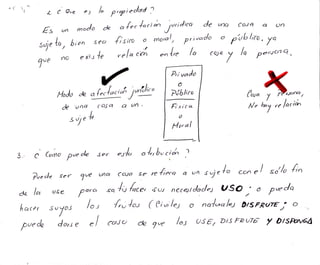 2. ¿ Que es la propiedad ?
Es un modo de afectación jurídica de una cosa a un
sujeto, bien sea físico o moral, privado o público, ya
que no existe relación entre la cosa y la persona.
Modo de afectación jurídica
de una cosa a un
sujeto
Privado
o
Público
Física
o
Moral
Cosa y persona,
No hay relación
3. ¿ Como puede ser esta atribución ?
Puede ser que una cosa se refiera a un sujeto con el sólo fin
de la use para satisfacer sus necesidades USO ; o pueda
hacer suyos los frutos (Civiles o naturales DISFRUTE ; o
puede darse el caso de que los USE, DISFRUTE Y DISPONGA